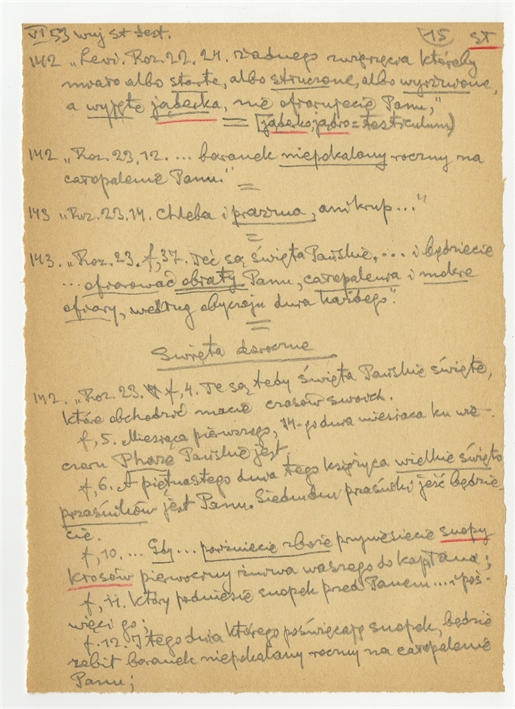 VI 53 wuj St. Test. 15 ST
142 „Levi. Roz. 22. 24. żadnego zwierzęcia któreby
miało albo starte, albo stłuczone, albo wyrznione,
a wyjęte jąderka, nie ofiarujecie Panu,"
(jąderko, jądro = testiculum)
142 „Roz. 23, 12. ... baranek niepokalany roczny na
całopalenie Panu."
143 „Roz. 23. 14. Chleba i prażma, ani krup..."
143. „Roz. 23. f, 37. Teć są święta Pańskie, ... i będziecie
... ofiarować obiaty Panu, całopalenia i mokre
ofiary, według obyczaju dnia każdego".
Święta doroczne
142. „Roz. 23. f, 4. Te są tedy święta Pańskie święte,
które obchodzić macie czasów swoich.
f, 5. Miesiąca pierwszego, 14-go dnia miesiąca ku wie-
czoru Phase Pańskie jest,
f, 6. A piętnastego dnia tego księżyca wielkie święto
przaśników jest Panu. Siedm dni przaśniki jeść będzie-
cie.
f, 10. ... Gdy ... pożniecie zboże przyniesiecie snopy
kłosów pierwociny żniwa waszego do kapłana;
f, 11. Który podniesie snopek przed Panem... i poś-
więci go;
f. 12. I tego dnia którego poświęcają snopek, będzie
zabit baranek niepokalany roczny na całopalenie
Panu;